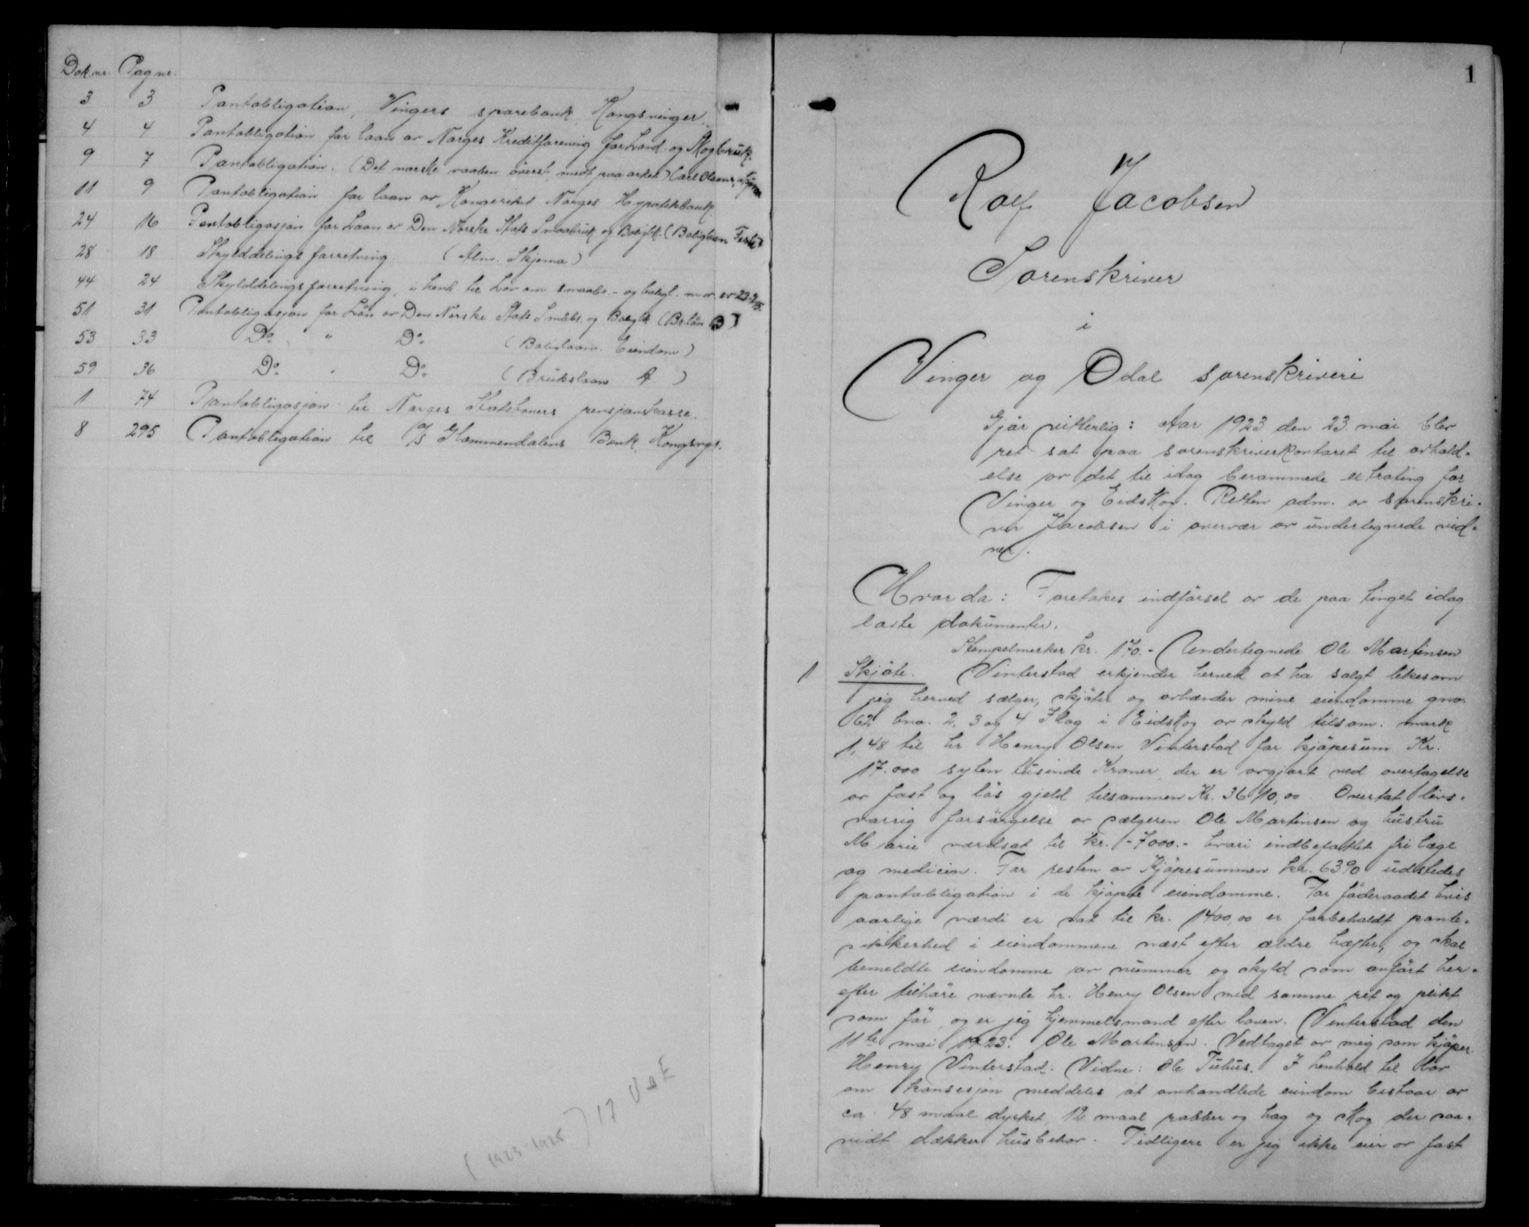 Dok nr. Pag nr.
3 3 Pantobligation, Vingers sparebank, Kongsvinger.
4 4 Pantobligation for laan av Norges Kreditforening for Land- og Skogbruk.
9 7 Pantobligation. (Det norske vaaben överst midt paa arket) Carl Olsens
11 9 Pantobligation for laan av Kongeriket Norges Hypotekbank
24 16 Pantobligasjon for Laan av Den Norske Stats Smaabruk og Boligbk. (Boliglaan Feste)
28 18 Skylddelings forretning. (Alm. Skjema)
44 24 Skylddelingsforretning, i henh. til Lov om smaabr.- og boligl. m.v. av
51 31 Pantobligasjon for Lån av Den Norske Stats Småbr. og Boligbk. (Br.lån B)
53 33 Do. " Do. (Boliglaan Eiendom)
59 36 Do. " Do. (Brukslaan A)
1 74 Pantobligasjon til Norges Statsbaners pensjonskasse.
8 295 Pantobligation til A/S Glommendalens Bank, Kongsvgr.
(1923-1925) 17
1
Rolf Jacobsen
Sorenskriver
i
Vinger og Odal sorenskriveri
Gjör vitterlig: Aar 1923 den 23 mai blev
ret sat paa sorenskriverkontoret til avhold-
else av det til idag berammede extrating for
Vinger og Eidskog. Retten adm. av sorenskri-
ver Jacobsen i overvær av undertegnede vid-
ner.
Hvorda: Foretokes indförsel av de paa tinget idag
læste dokumenter.
Stempelmerker kr. 170.- Undertegnede Ole Martinsen
1 Skjöte. Vinterstad erkjender herved at ha solgt likesom
jeg herved sælger, skjöter og avhænder mine eiendomme gno.
62 bno. 2, 3 og 4 Flag i Eidskog av skyld tilsam. mark
1,48 til hr Henry Olsen Vinterstad for kjöpesum Kr.
17.000 sytten tusinde Kroner der er avgjort ved overtagelse
av fast og lös gjeld tilsammen Kr. 3610,00 Overtat livs-
varig forsörgelse av sælgeren Ole Martinsen og hustru
Marie værdsat til kr. -7000.- hvori indbefattet fri læge
og medicin. For resten av Kjöpesummen kr. 6390 utstedes
pantobligation i de kjöpte eiendomme. For föderaadet hvis
aarlige værdi er sat til kr. 1400,00 er forbeholdt pante-
sikkerhed i eiendommene næst efter ældre hæfter, og skal
bemeldte eiendomme av nummer og skyld som anfört her-
efter tilhöre nævnte hr. Henry Olsen med samme ret og pligt
som för og er jeg hjemmelsmand efter loven. Vinterstad den
11te mai 1923. Ole Martinsen. Vedtaget av mig som kjöper
Henry Vinterstad. Vidne: Ole Tuhus. I henhold til lov
om konsesjon meddeles at omhandlede eiendom bestaar av
ca 48 maal dyrket, 12 maal rabber og hag og skog der saa-
vidt dækker husbehov. Tidligere er jeg ikke eier av fast